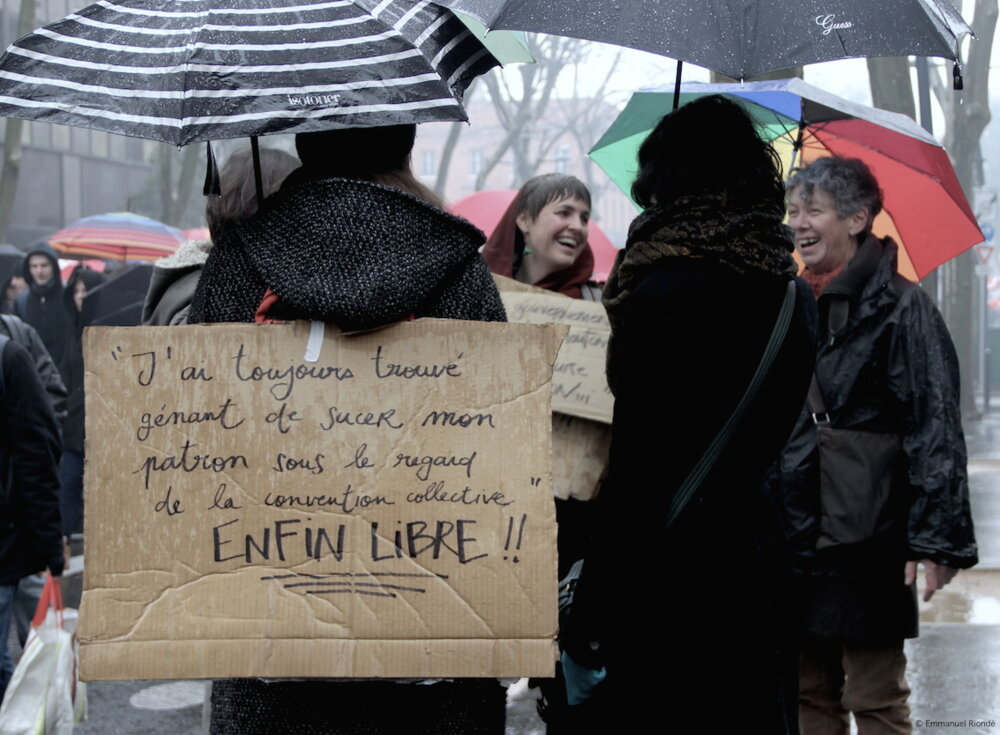 Guess
isotoner
"J'ai toujours trouvé
gênant de sucer mon
patron sous le regard
de la convention collective"
ENFIN LiBRE !!
© Emmanuel Riondé